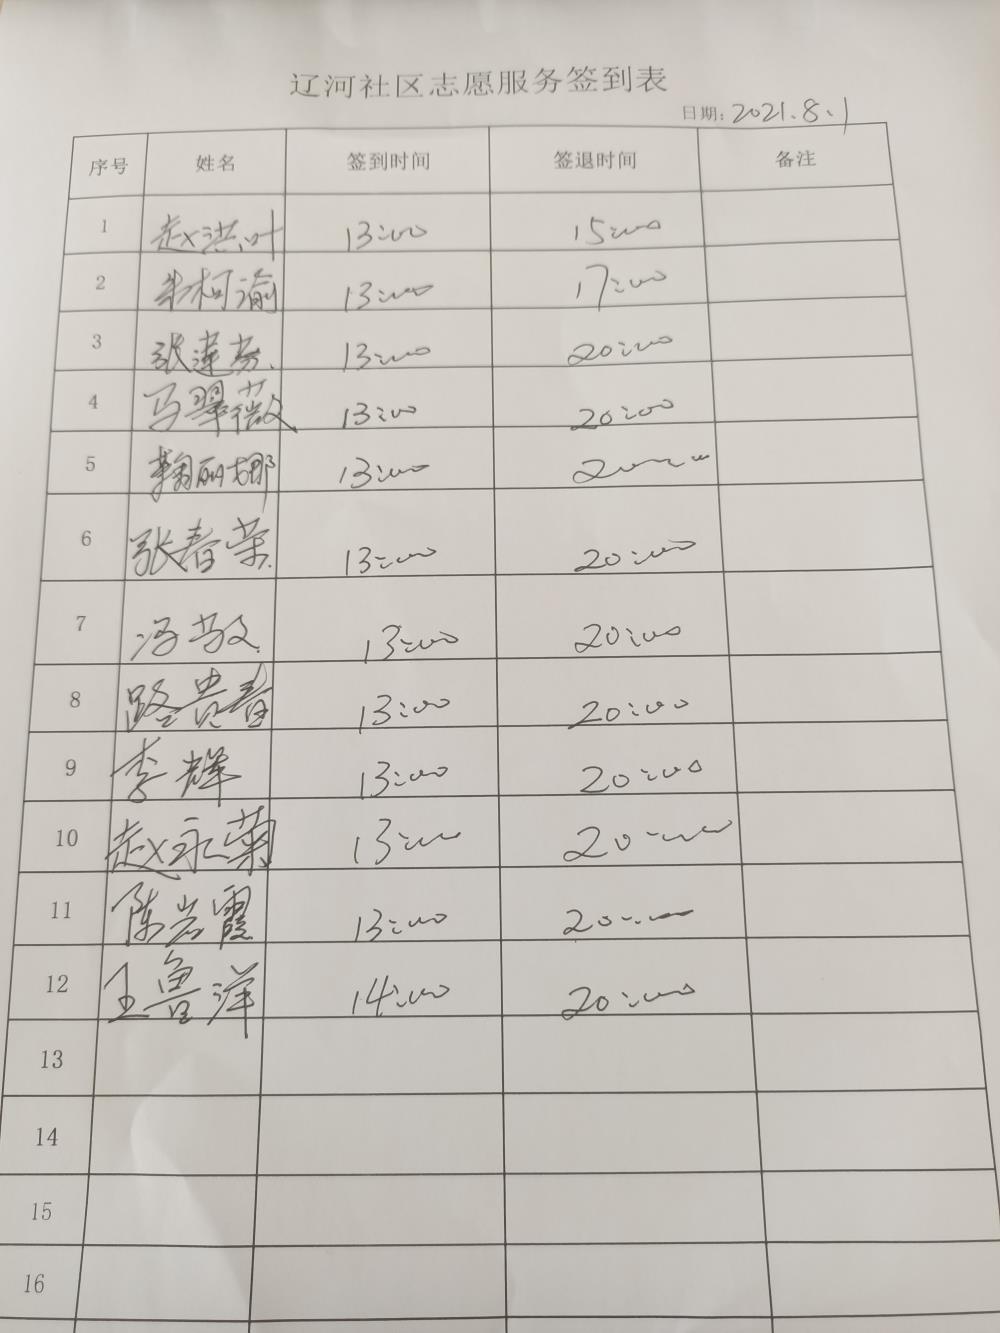 辽河社区志愿服务签到表
日期: 2021.8.1
序号 姓名 签到时间 签退时间 备注
1 赵洪叶 13:00 15:00
2 柯谕 13:00 17:00
3 张莲芬. 13:00 20:00
4 马翠薇 13:00 20:00
5 鞠丽娜 13:00 20:00
6 张春荣. 13:00 20:00
7 冯敬. 13:00 20:00
8 路贵春 13:00 20:00
9 李辉 13:00 20:00
10 赵永菊 13:00 20:00
11 陈岩霞 13:00 20:00
12 王鲁洋 14:00 20:00
13
14
15
16